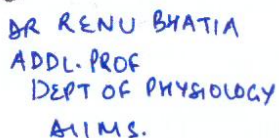 DR RENU BHATIA
ADDL. PROF
DEPT OF PHYSIOLOGY
AIIMS.